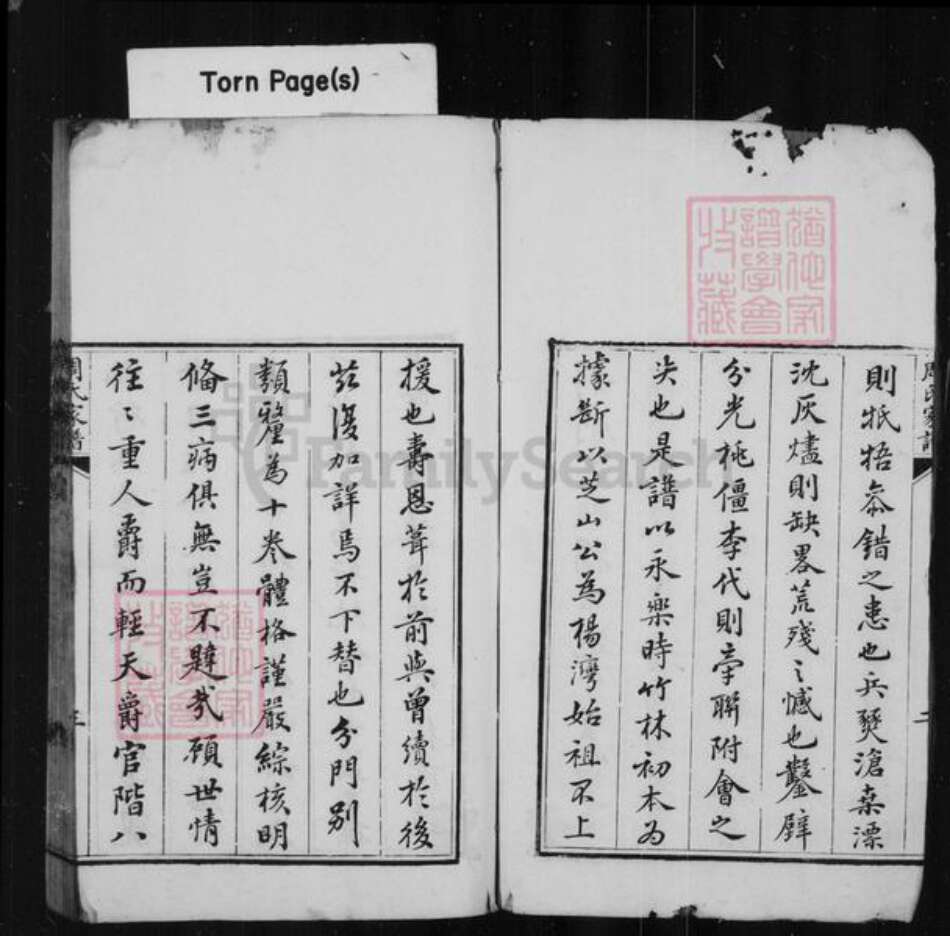 Torn Page(s)
則牴牾忝錯之患也兵燹滄桑漂
沈灰燼則缺畧荒殘之憾也鑿壁
分光桃僵李代則牽聯附會之
失也是譜以永樂時竹林初本為
據斷以芝山公為楊灣始祖不上
援也壽恩葺於前與曾續於後
茲復加詳焉不下替也分門別
類釐為十卷體格謹嚴綜核明
俻三病俱無豈不韙哉顧世情
往〻重人爵而輕天爵官階八
周氏家譜
二
周氏家譜
三
譜學會
收藏
FamilySearch